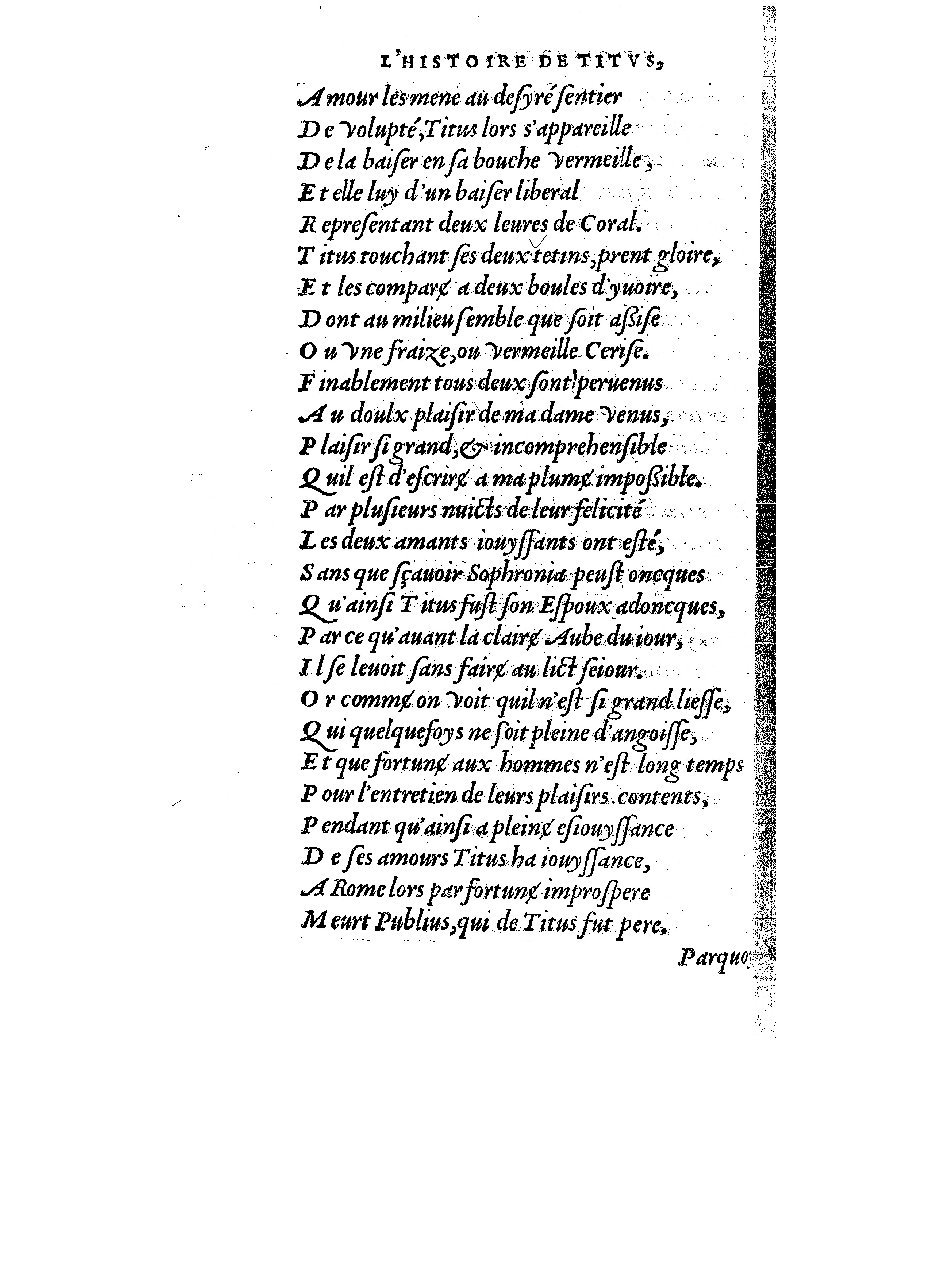 L'HISTOIRE DE TITVS,
Amour les mene au desyré sentier
De volupté, Titus lors s'appareille
De la baiſer en ſa bouche vermeille,
Et elle luy d'un baiſer liberal
Repreſentant deux leures de Coral.
Titus touchant ſes deux tetins, prent gloire,
Et les comparɇ a deux boules d'yuoire,
Dont au milieu ſemble que ſoit aſſiſe
Ou vne fraize, ou vermeille Ceriſe.
Finablement tous deux ſont peruenus
Au doulx plaiſir de ma dame Venus,
Plaiſir ſi grand, & incomprehenſible
Quil eſt d'eſcrirɇ a ma plumɇ impoſſible.
Par pluſieurs nuicts de leur felicité
Les deux amants iouyſſants ont eſté,
Sans que ſçauoir Sophronia peuſt oncques
Qu'ainſi Titus fuſt ſon Eſpoux adoncques,
Par ce qu'auant la clairɇ Aube du iour,
Il ſe leuoit ſans fairɇ au lict ſeiour.
Or commɇ on voit quil n'eſt ſi grand lieſſe,
Qui quelquefoys ne ſoit pleine d'angoiſſe,
Et que fortunɇ aux hommes n'eſt long temps
Pour l'entretien de leurs plaiſirs contents,
Pendant qu'ainſi a pleinɇ eſiouyſſance
De ſes amours Titus ha iouyſſance,
A Rome lors par fortunɇ improſpere
Meurt Publius, qui de Titus fut pere.
Parquoy